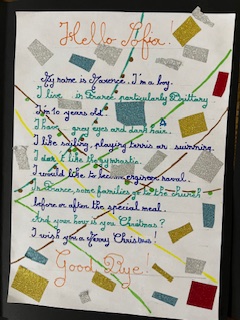 Hello Sofia!
My name is Maxence. I'm a boy.
I live in France particularly Brittany
I'm 10 years old.
I have grey eyes and dark hair.
I like sailing, playing tennis or swimming.
I don't like the gymnastic.
I would like to become engineer naval.
In France, some families go to the church
before or after the special meal.
And your how is you Christmas?
I wish you a Merry Christmas!
Good Bye!